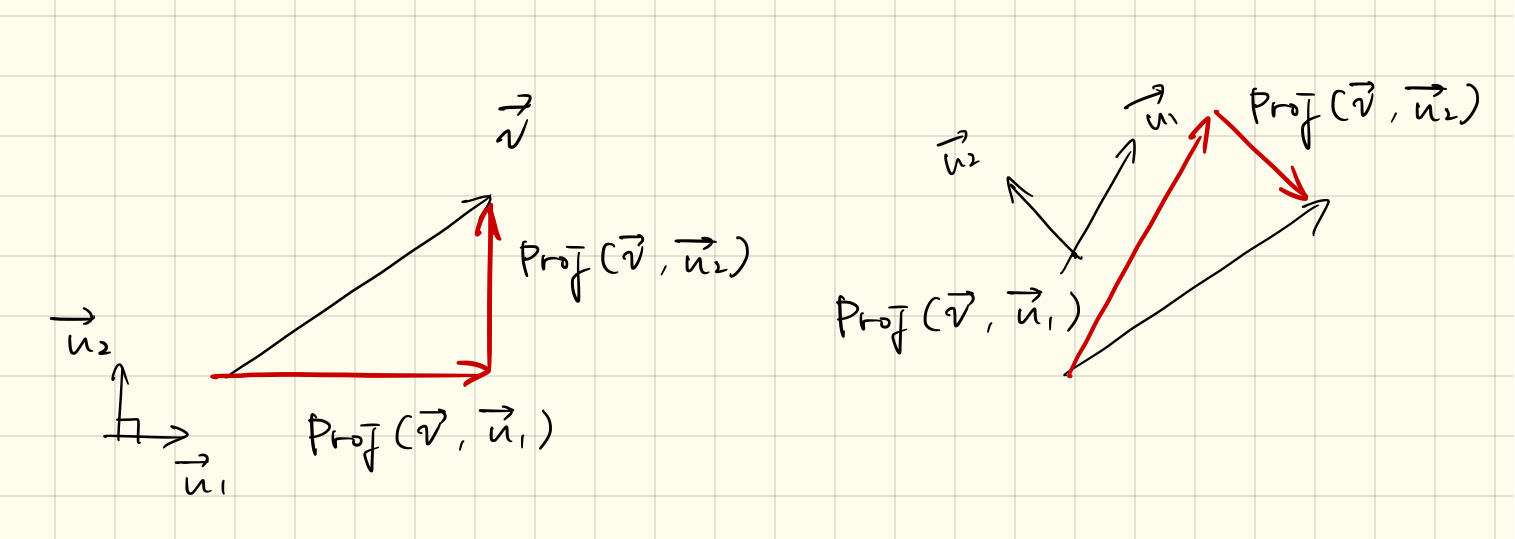 $\vec{v}$
$\text{Proj}(\vec{v}, \vec{u_2})$
$\vec{u_2}$
$\text{Proj}(\vec{v}, \vec{u_1})$
$\vec{u_1}$
$\vec{u_1}$
$\text{Proj}(\vec{v}, \vec{u_2})$
$\vec{u_2}$
$\text{Proj}(\vec{v}, \vec{u_1})$